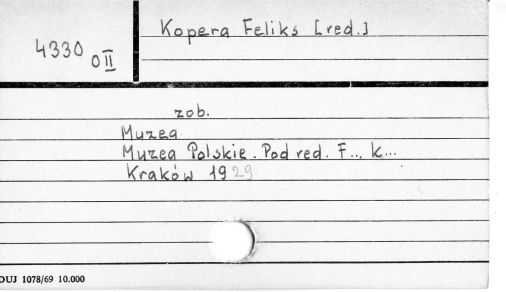 Kopera Feliks [red.]
4330
O II
zob.
Muzea
Muzea Polskie. Pod red. F... K...
Kraków 1929
DUJ 1078/69 10.000